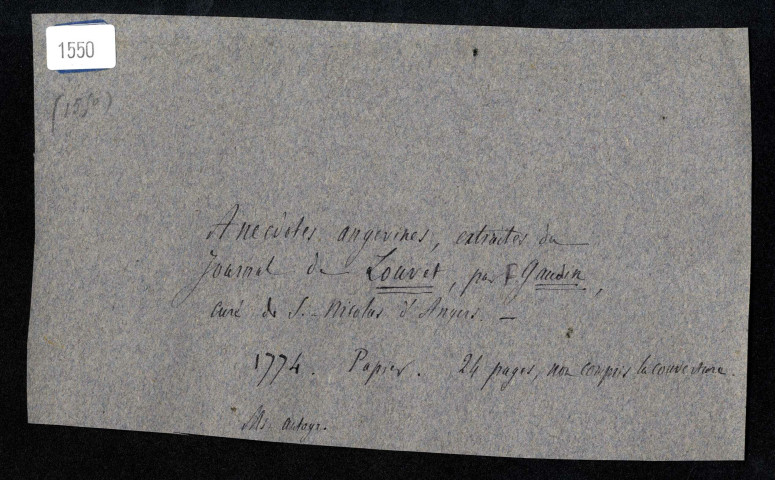 1550
(1550)
Anecdotes angevines, extraites du
Journal de Louvet, par F. Gaudin,
curé de S.-Nicolas d'Angers. —
1774. Papier. 24 pages, non compris la couverture.
Ms. autogr.